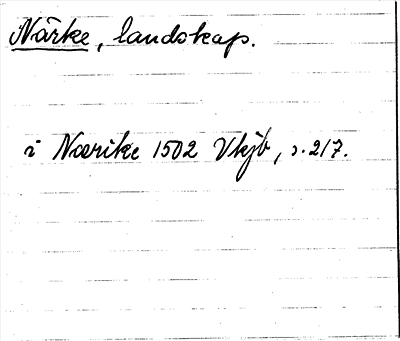 Närke, landskap.
i Nærike 1502 Vkjb, s. 217.